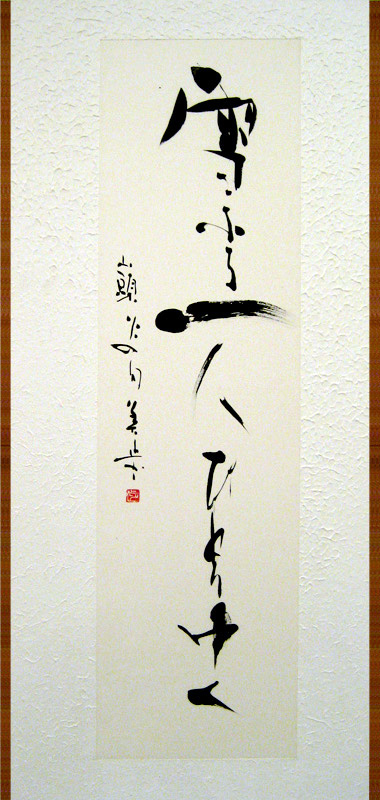 雪ふる一人ひとりゆく
山頭火の句